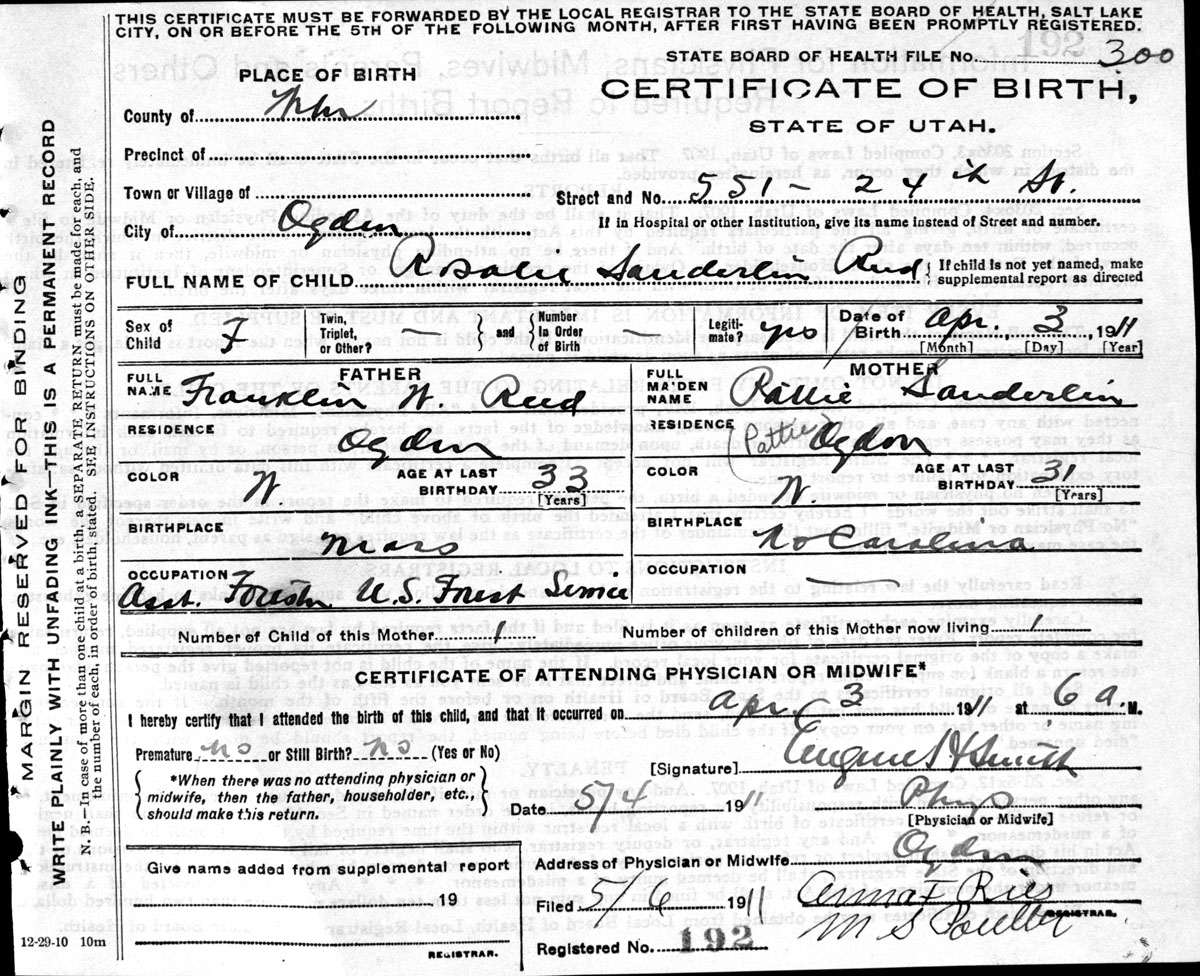 THIS CERTIFICATE MUST BE FORWARDED BY THE LOCAL REGISTRAR TO THE STATE BOARD OF HEALTH, SALT LAKE
CITY, ON OR BEFORE THE 5TH OF THE FOLLOWING MONTH, AFTER FIRST HAVING BEEN PROMPTLY REGISTERED.
STATE BOARD OF HEALTH FILE No. 300
PLACE OF BIRTH
CERTIFICATE OF BIRTH,
County of
STATE OF UTAH.
Precinct of
Town or Village of
Street and No. 551 - 24th St.
City of Ogden
If in Hospital or other Institution, give its name instead of Street and number.
FULL NAME OF CHILD Rosalie Sanderlin Reed
If child is not yet named, make supplemental report as directed
Sex of Child F
Twin, Triplet, or Other? — and Number In Order of Birth —
Legiti-mate? yes
Date of Birth Apr. 3 1911
[Month] [Day] [Year]
FATHER
FULL NAME Franklin W. Reed
RESIDENCE Ogden
COLOR W.
AGE AT LAST BIRTHDAY 33
[Years]
BIRTHPLACE Mass
OCCUPATION Asst. Forester U.S. Forest Service
MOTHER
FULL MAIDEN NAME Pattie Sanderlin
RESIDENCE (Pattie) Ogden
COLOR W.
AGE AT LAST BIRTHDAY 31
[Years]
BIRTHPLACE No Carolina
OCCUPATION —
Number of Child of this Mother 1
Number of children of this Mother now living 1
CERTIFICATE OF ATTENDING PHYSICIAN OR MIDWIFE*
I hereby certify that I attended the birth of this child, and that it occurred on Apr. 3 1911 at 6 a M.
Premature no or Still Birth? no (Yes or No)
*When there was no attending physician or
midwife, then the father, householder, etc.,
should make this return.
[Signature] Eugene H Smith
Date 5/4 1911
Phys
[Physician or Midwife]
Give name added from supplemental report
19
REGISTRAR.
Address of Physician or Midwife Ogden
Filed 5/6 1911
REGISTRAR.
Registered No. 192
12-29-10 10m
MARGIN RESERVED FOR BINDING
WRITE PLAINLY WITH UNFADING INK—THIS IS A PERMANENT RECORD
N. B.—In case of more than one child at a birth, a SEPARATE RETURN must be made for each, and
the number of each, in order of birth, stated. SEE INSTRUCTIONS ON OTHER SIDE.